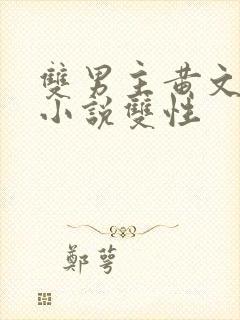 雙男主黃文
小說雙性
鄭萼